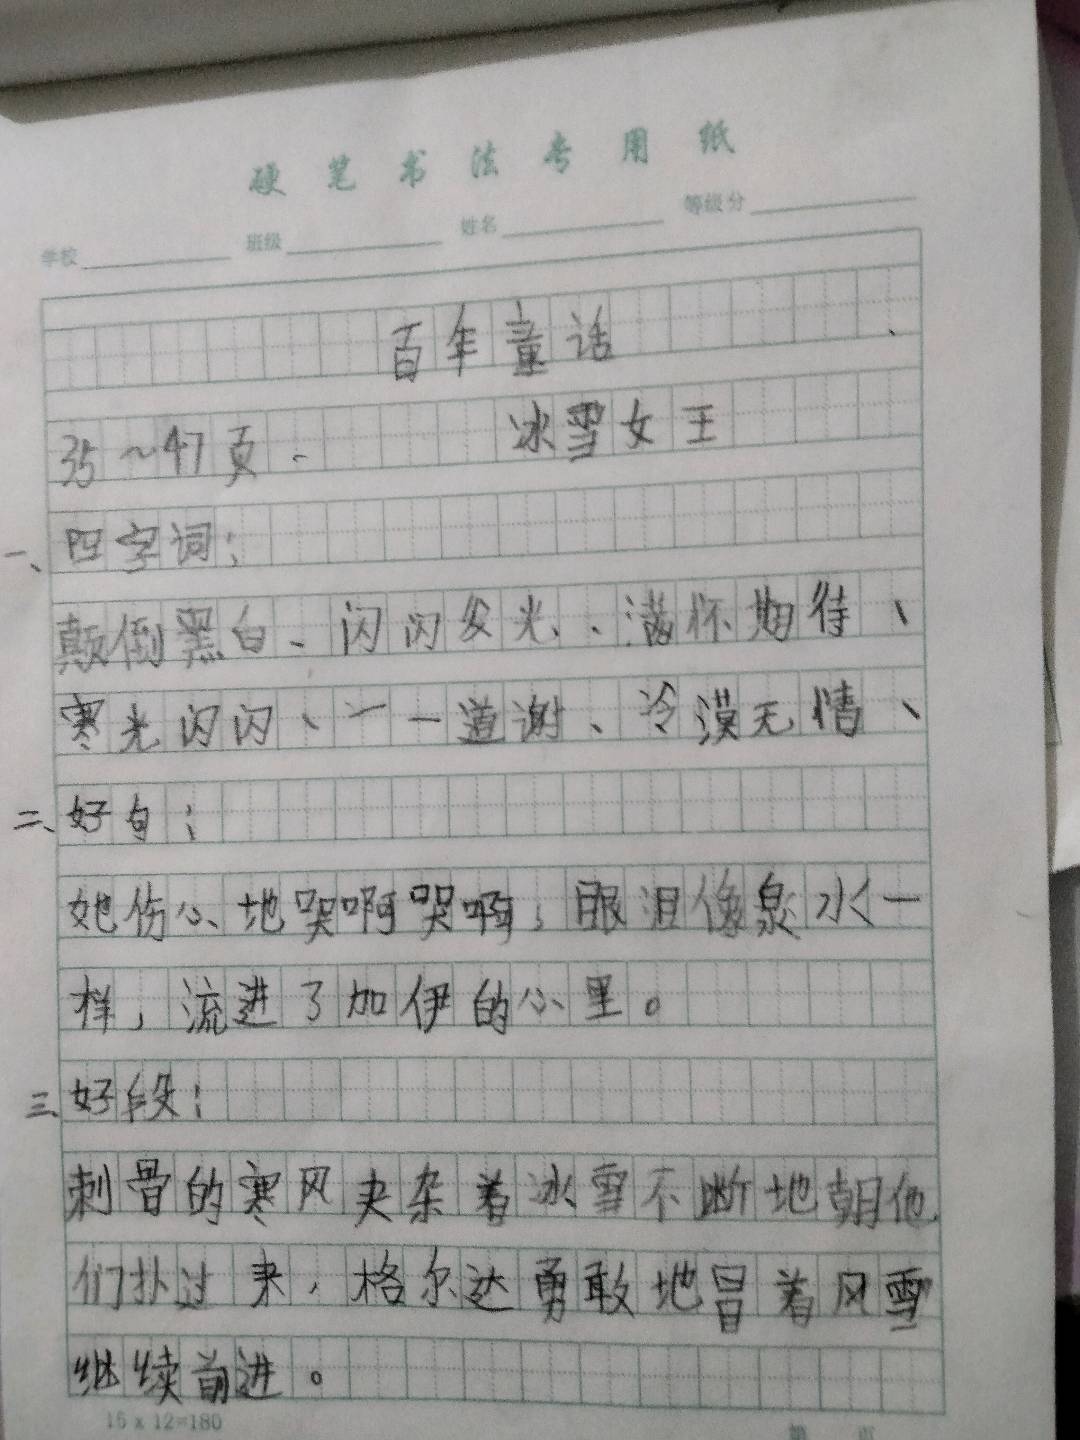 硬笔书法专用纸
学校 班级 姓名 等级分
百年童话
35~47页. 冰雪女王
一、四字词：
颠倒黑白、闪闪发光、、满怀期待、
寒光闪闪、一一道谢、冷漠无情、
二、好句：
她伤心地哭啊哭啊，眼泪像泉水一
样，流进了加伊的心里。
三、好段：
刺骨的寒风夹杂着冰雪不断地朝他
们扑过来，格尔达勇敢地冒着风雪
继续前进。
15 x 12=180
第 页